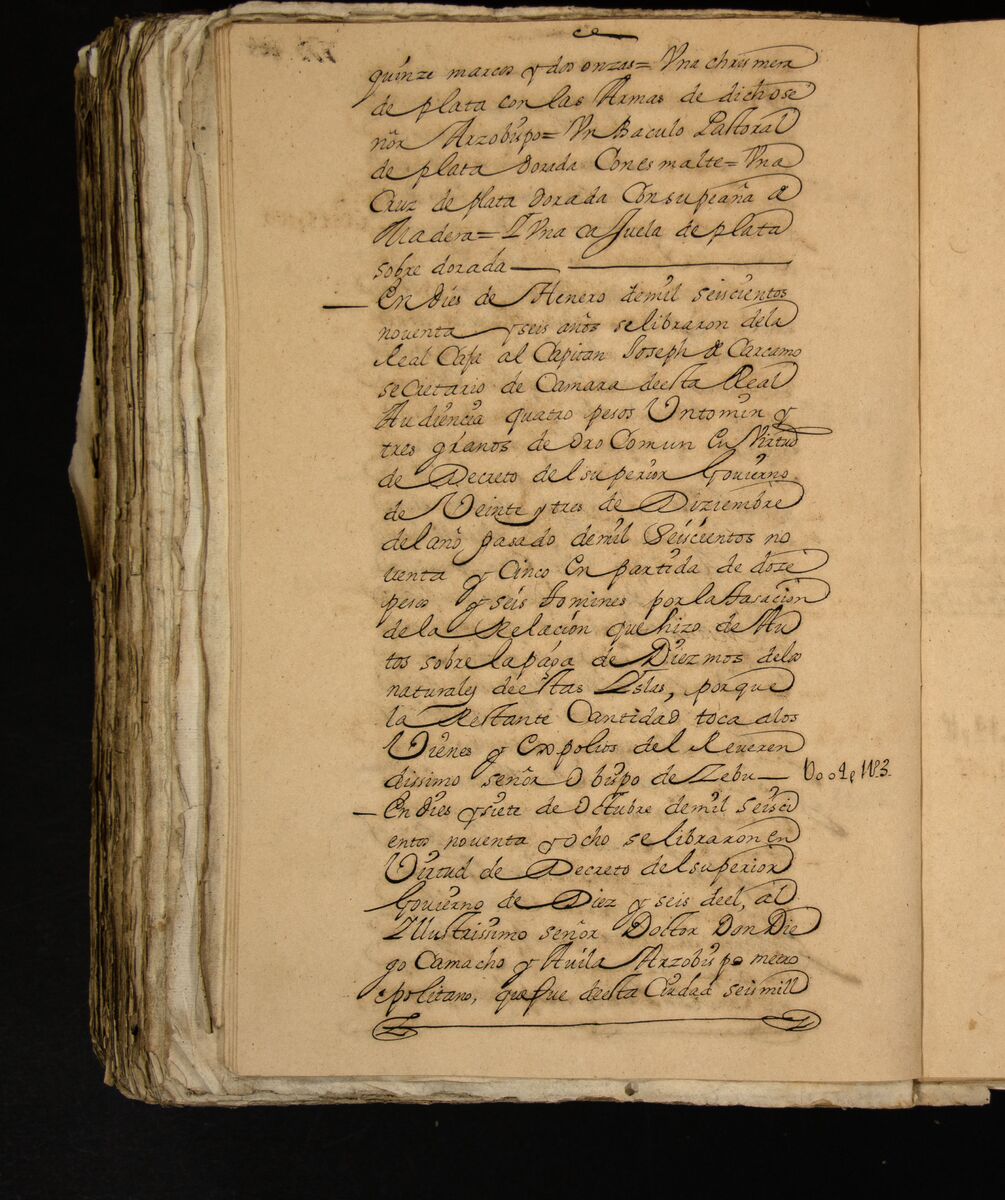 quinze marcos y dos onzas= Vna chrismera
de plata con las Armas de dichose
ñor Arzobispo= Vn Baculo Pastoral
de plata dorada Con esmalte= Vna
Cruz de plata dorada Con supeaña de
Madera= Y Vna casuela de plata
sobre dorada
En dies de Henero demil seiscientos
noventa y seis años selibraron dela
Real Caja al Capitan Joseph de Carcamo
secretario de Camara desta Real
Audiencia quatro pesos Vntomin y
tres granos de Oro Comun En Virtud
de Decreto del superior Govierno
de Veinte y tres de Diziembre
del año pasado demil Seiscientos no
venta y Cinco En partida de doze
pesos y seis tomines por la tasacion
de la Relacion que hizo de Au
tos sobre la paga de Diezmos delos
naturales de estas Yslas, por que
la Restante Cantidad toca alos
Vienes y Expolios del Reveren
dissimo señor Obispo de Zebu
En dies y siete de Octubre demil seisci
entos noventa y ocho se libraron en
Virtud de Decreto del superior
Govierno de Diez y seis deel, al
Yllustrissimo señor Doctor Don Die
go Camacho y Avila Arzobispo metro
politano, que fue desta Ciudad seis mill